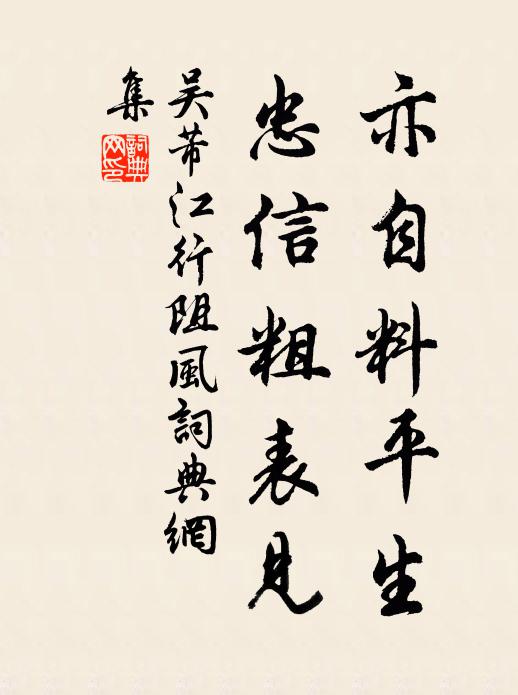 亦自料平生
忠信粗表見
吴芾江行阻風詞典網
集
詞典
网印